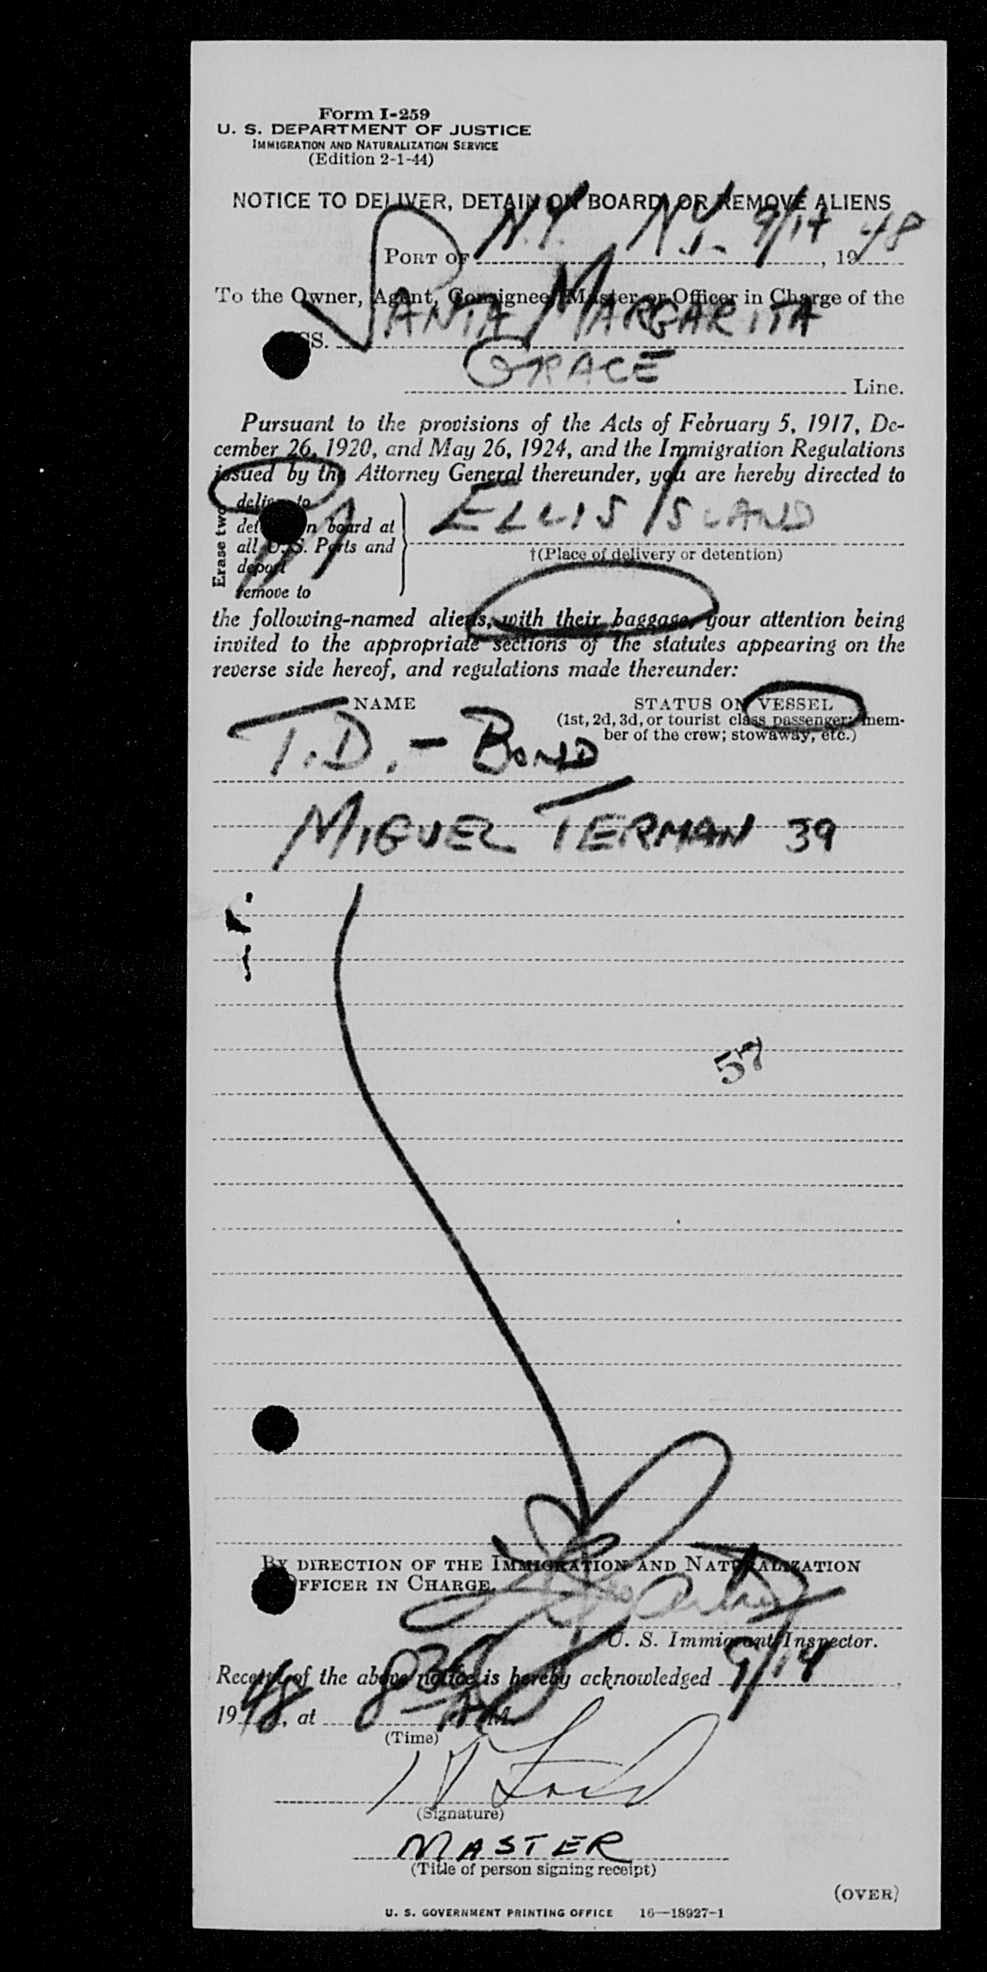 Form I-259
U. S. DEPARTMENT OF JUSTICE
IMMIGRATION AND NATURALIZATION SERVICE
(Edition 2-1-44)
NOTICE TO DELIVER, DETAIN ON BOARD, OR REMOVE ALIENS
PORT OF N.Y. N.Y. 9/14, 1948
To the Owner, Agent, Consignee, Master or Officer in Charge of the
SS. SANTA MARGARITA
GRACE Line.
Pursuant to the provisions of the Acts of February 5, 1917, De-
cember 26, 1920, and May 26, 1924, and the Immigration Regulations
issued by the Attorney General thereunder, you are hereby directed to
Erase two
deliver to
detain on board at
all U. S. Ports and
deport
remove to
ELLIS ISLAND
†(Place of delivery or detention)
the following-named aliens, with their baggage, your attention being
invited to the appropriate sections of the statutes appearing on the
reverse side hereof, and regulations made thereunder:
NAME STATUS ON VESSEL
(1st, 2d, 3d, or tourist class passenger; mem-
ber of the crew; stowaway, etc.)
T.D. - BOND
MIGUEL TERMAN 39
57
BY DIRECTION OF THE IMMIGRATION AND NATURALIZATION
OFFICER IN CHARGE.
U. S. Immigrant Inspector.
Receipt of the above notice is hereby acknowledged 9/14,
1948, at 830 A M.
(Time)
(Signature)
MASTER
(Title of person signing receipt)
(OVER)
U. S. GOVERNMENT PRINTING OFFICE 16—18927-1